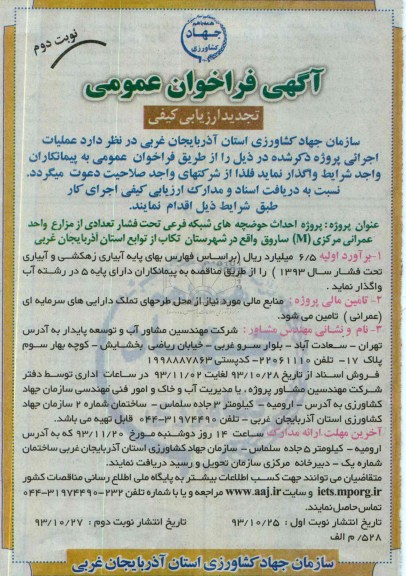 جهاد
کشاورزی
نوبت دوم
آگهی فراخوان عمومی
تجدید ارزیابی کیفی
سازمان جهاد کشاورزی استان آذربایجان غربی در نظر دارد عملیات
اجرائی پروژه ذکر شده در ذیل را از طریق فراخوان عمومی به پیمانکاران
واجد شرایط واگذار نماید فلذا از شرکتهای واجد صلاحیت دعوت میگردد.
نسبت به دریافت اسناد و مدارک ارزیابی کیفی اجرای کار
طبق شرایط ذیل اقدام نمایند.
عنوان پروژه: پروژه احداث حوضچه های شبکه فرعی تحت فشار تعدادی از مزارع واحد
عمرانی مرکزی (M) ساروق واقع در شهرستان تکاب از توابع استان آذربایجان غربی
۱-برآورد اولیه ۶/۵ میلیارد ریال (براساس فهارس بهای پایه آبیاری زهکشی و آبیاری
تحت فشار سال ۱۳۹۳ ) را از طریق مناقصه به پیمانکاران دارای پایه ۵ در رشته آب
واگذار نماید .
۲-تامین مالی پروژه : منابع مالی مورد نیاز از محل طرحهای تملک دارایی های سرمایه ای
(عمرانی ) تامین می شود.
۳-نام و نشانی مهندس مشاور : شرکت مهندسین مشاور آب و توسعه پایدار به آدرس
تهران - سعادت آباد - بلوار سرو غربی - خیابان ریاضی بخشایش - کوچه بهار سوم
پلاک ۱۷- تلفن ۲۲۰۶۱۱۱۰-کدپستی ۱۹۹۸۸۸۷۸۶۳
فروش اسناد از تاریخ ۹۳/۱۰/۲۸ لغایت ۹۳/۱۱/۰۲ در ساعات اداری توسط دفتر
شرکت مهندسین مشاور پروژه ، یا مدیریت آب و خاک و امور فنی مهندسی سازمان جهاد
کشاورزی به آدرس - ارومیه - کیلومتر ۳ جاده سلماس - ساختمان شماره ۲ سازمان جهاد
کشاورزی استان آذربایجان غربی - تلفن ۳۱۹۷۴۴۹۰-۰۴۴ قابل تهیه می باشد.
آخرین مهلت ارائه مدارک ساعت ۱۴ روز دوشنبه مورخ ۹۳/۱۱/۲۰ که به آدرس
ارومیه - کیلومتر ۵ جاده سلماس - سازمان جهاد کشاورزی استان آذربایجان غربی ساختمان
شماره یک - دبیرخانه مرکزی سازمان تحویل و رسید دریافت نمایند.
متقاضیان می توانند جهت کسب اطلاعات بیشتر به پایگاه ملی اطلاع رسانی مناقصات کشور
iets.mporg.ir و سایت www.aaj.ir مراجعه و یا با شماره تلفن ۲۳۲-۳۱۹۷۴۴۹۰-۰۴۴
تماس حاصل نمایند.
تاریخ انتشار نوبت اول : ۹۳/۱۰/۲۵ تاریخ انتشار نوبت دوم : ۹۳/۱۰/۲۷
۵۲۸/ م الف
سازمان جهاد کشاورزی استان آذربایجان غربی